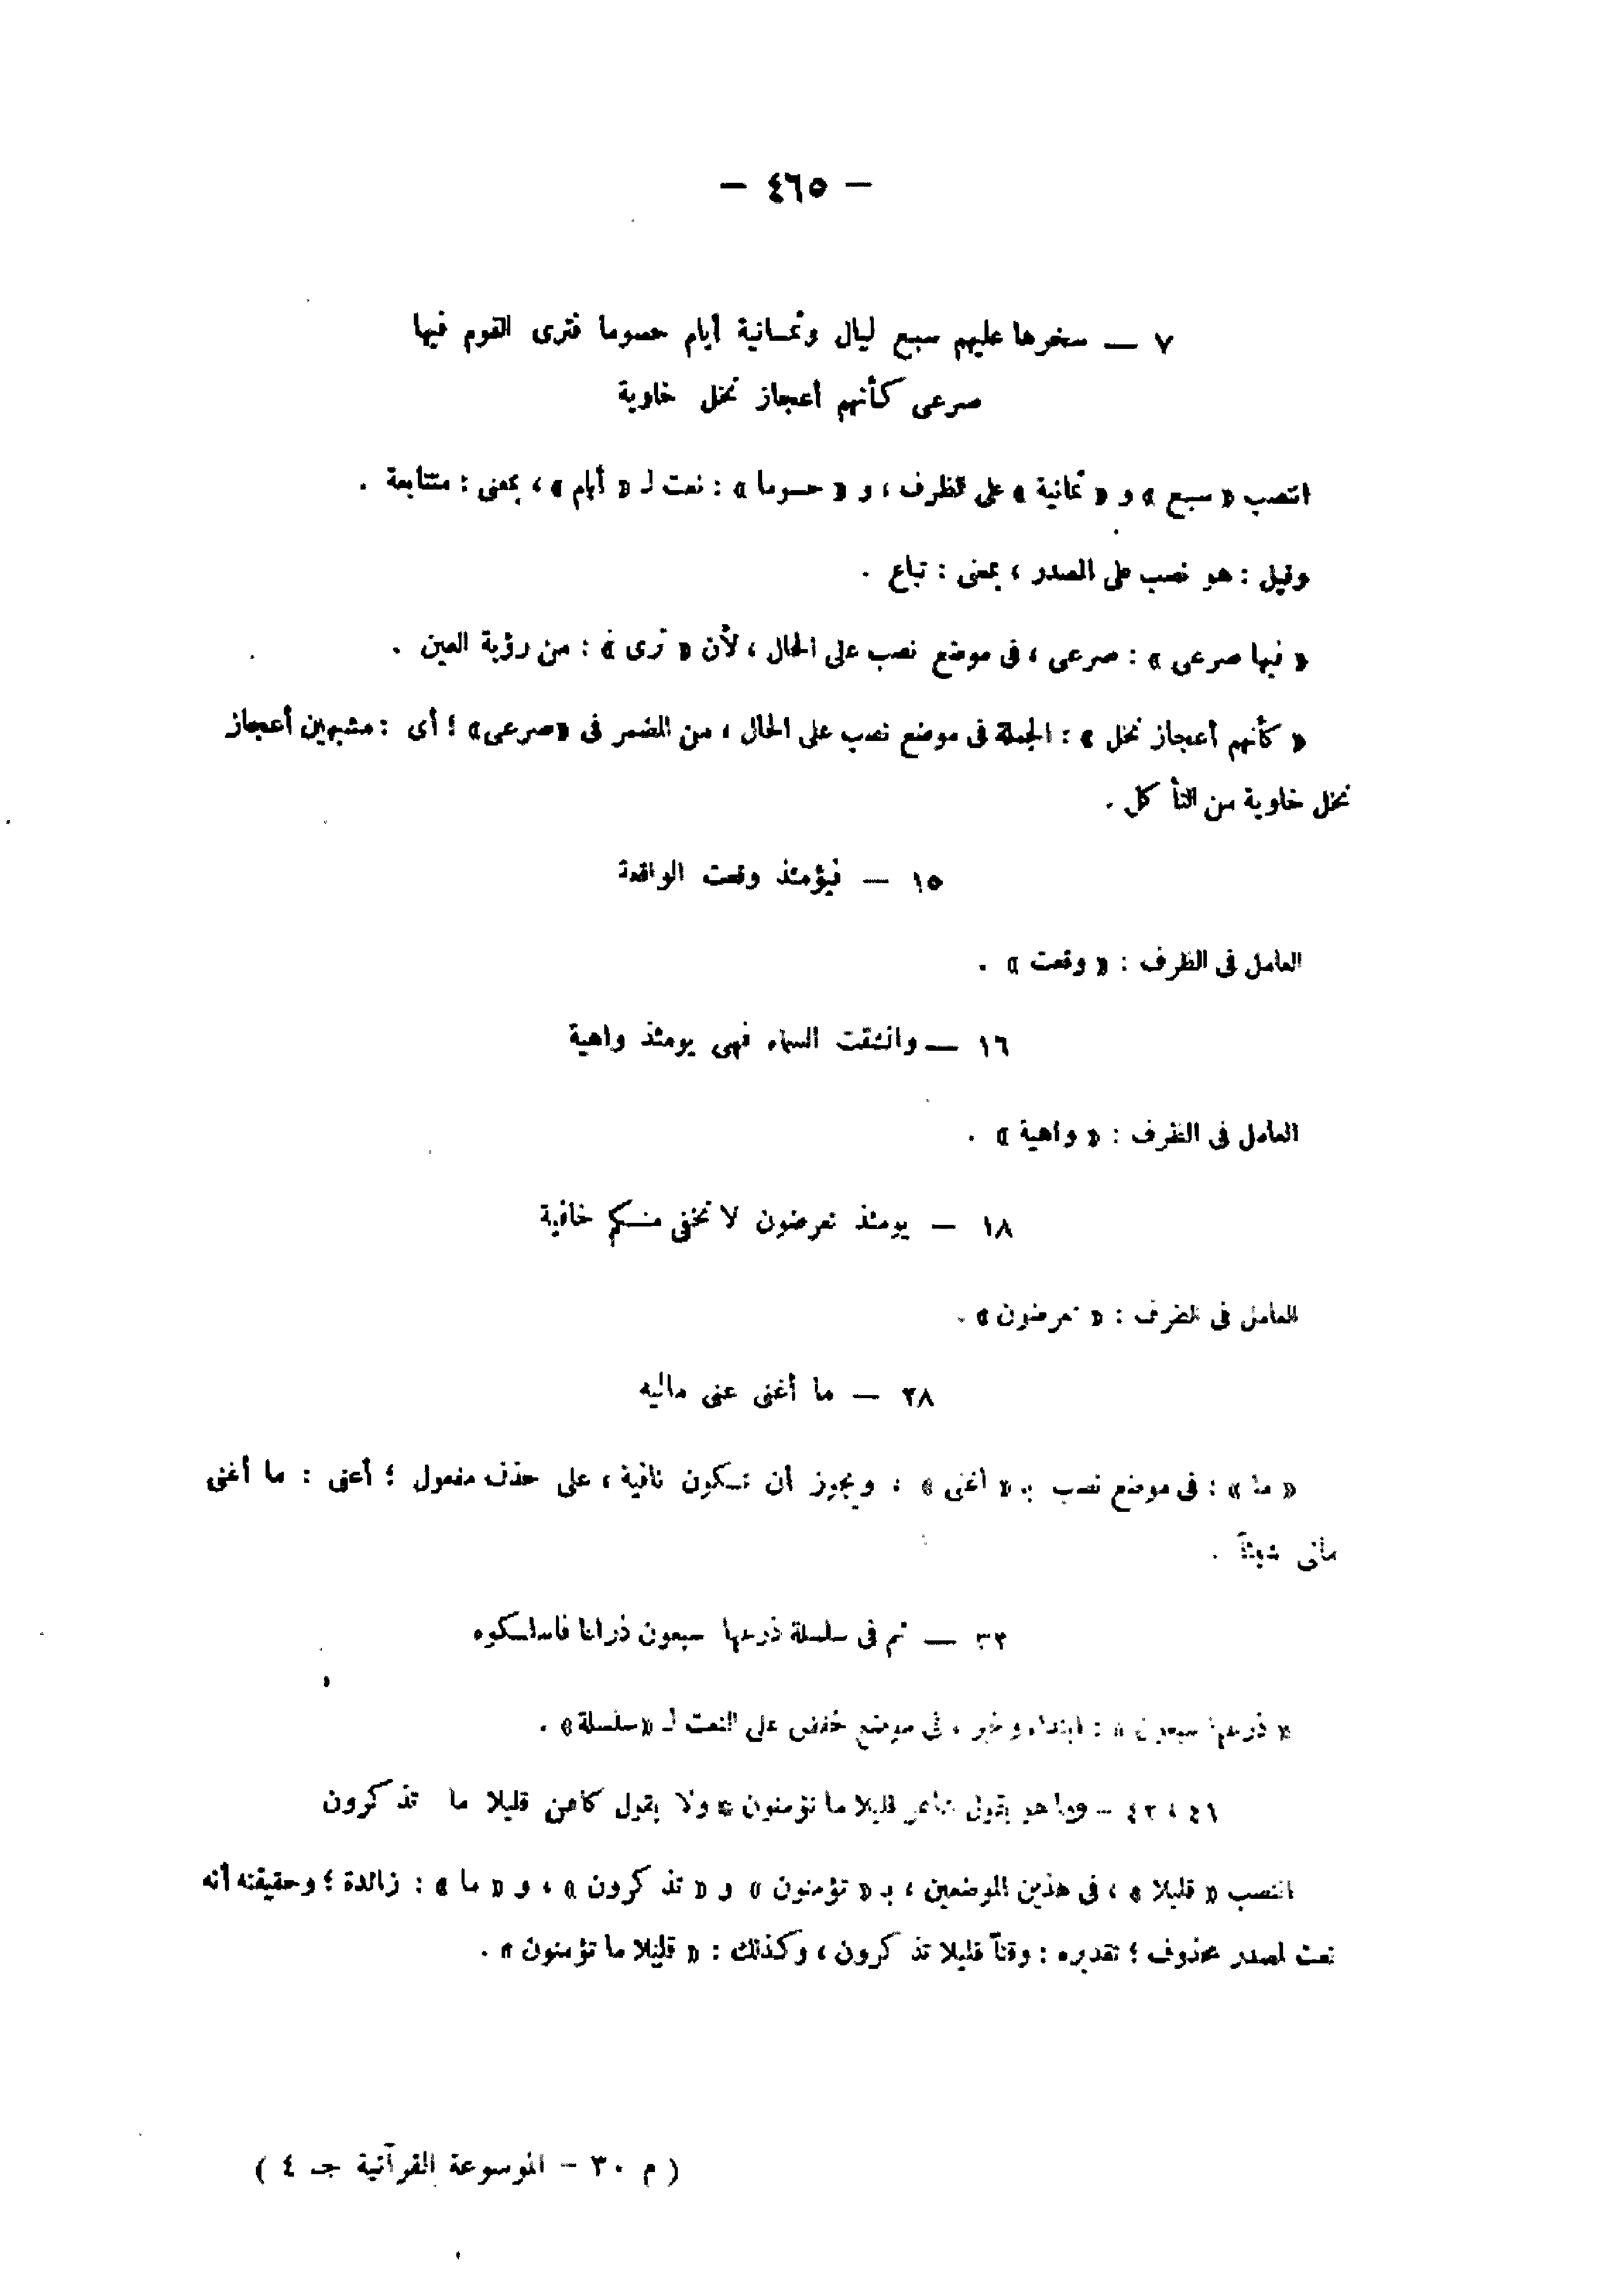 — ٤٦٥ —
٧ — سخرها عليهم سبع ليال وثمانية أيام حسوما فترى القوم فيها
صرعى كأنهم أعجاز نخل خاوية
انتصب « سبع » و « ثمانية » على الظرف ، و « حسوما » : نعت لـ « أيام » ، بمعنى : متتابعة .
وقيل : هو نصب على المصدر ، بمعنى : تباع .
« فيها صرعى » : صرعى ، فى موضع نصب على الحال ، لأن « ترى » : من رؤية العين .
« كأنهم أعجاز نخل » : الجملة فى موضع نصب على الحال ، من المضمر فى « صرعى » ؛ أى : مشبهين أعجاز
نخل خاوية من التأكل .
١٥ — فيؤمئذ وقعت الواقعة
العامل فى الظرف : « وقعت » .
١٦ — وانشقت السماء فهى يومئذ واهية
العامل فى الظرف : « واهية » .
١٨ — يومئذ تعرضون لا تخفى منكم خافية
العامل فى الظرف : « تعرضون » .
٢٨ — ما أغنى عنى ماليه
« ما » : فى موضع نصب بـ « أغنى » ؛ ويجوز أن تكون نافية ، على حذف مفعول ؛ أعنى : ما أغنى
مالى شيئاً .
٣٢ — ثم فى سلسلة ذرعها سبعون ذراعا فاسلكوه
« ذرعها سبعون » : ابتداء وخبر ، فى موضع خفض على النعت لـ « سلسلة » .
٤١ ، ٤٢ — وما هو بقول شاعر قليلا ما تؤمنون * ولا بقول كاهن قليلا ما تذكرون
انتصب « قليلا » ، فى هذين الموضعين ، بـ « تؤمنون » و « تذكرون » ، و « ما » : زائدة ؛ وحقيقته أنه
نعت لمصدر محذوف ؛ تقديره : وقتاً قليلا تذكرون ، وكذلك : « قليلا ما تؤمنون » .
( م ٣٠ — الموسوعة القرآنية جـ ٤ )